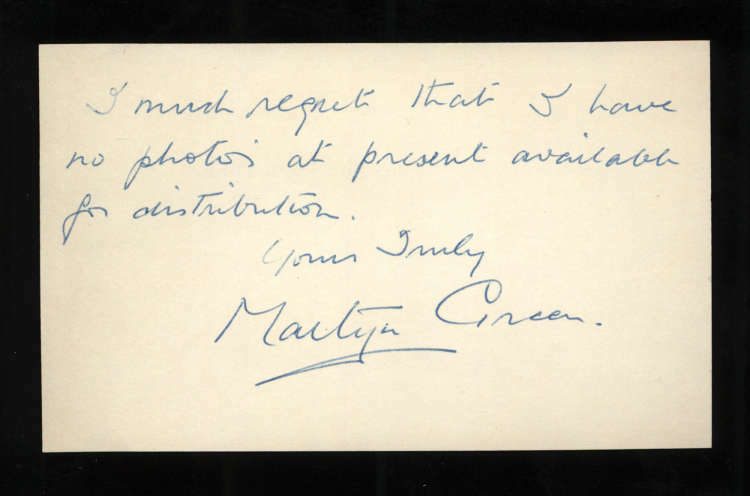 I much regret that I have
no photo's at present available
for distribution.
Yours Truly
Martyn Green.